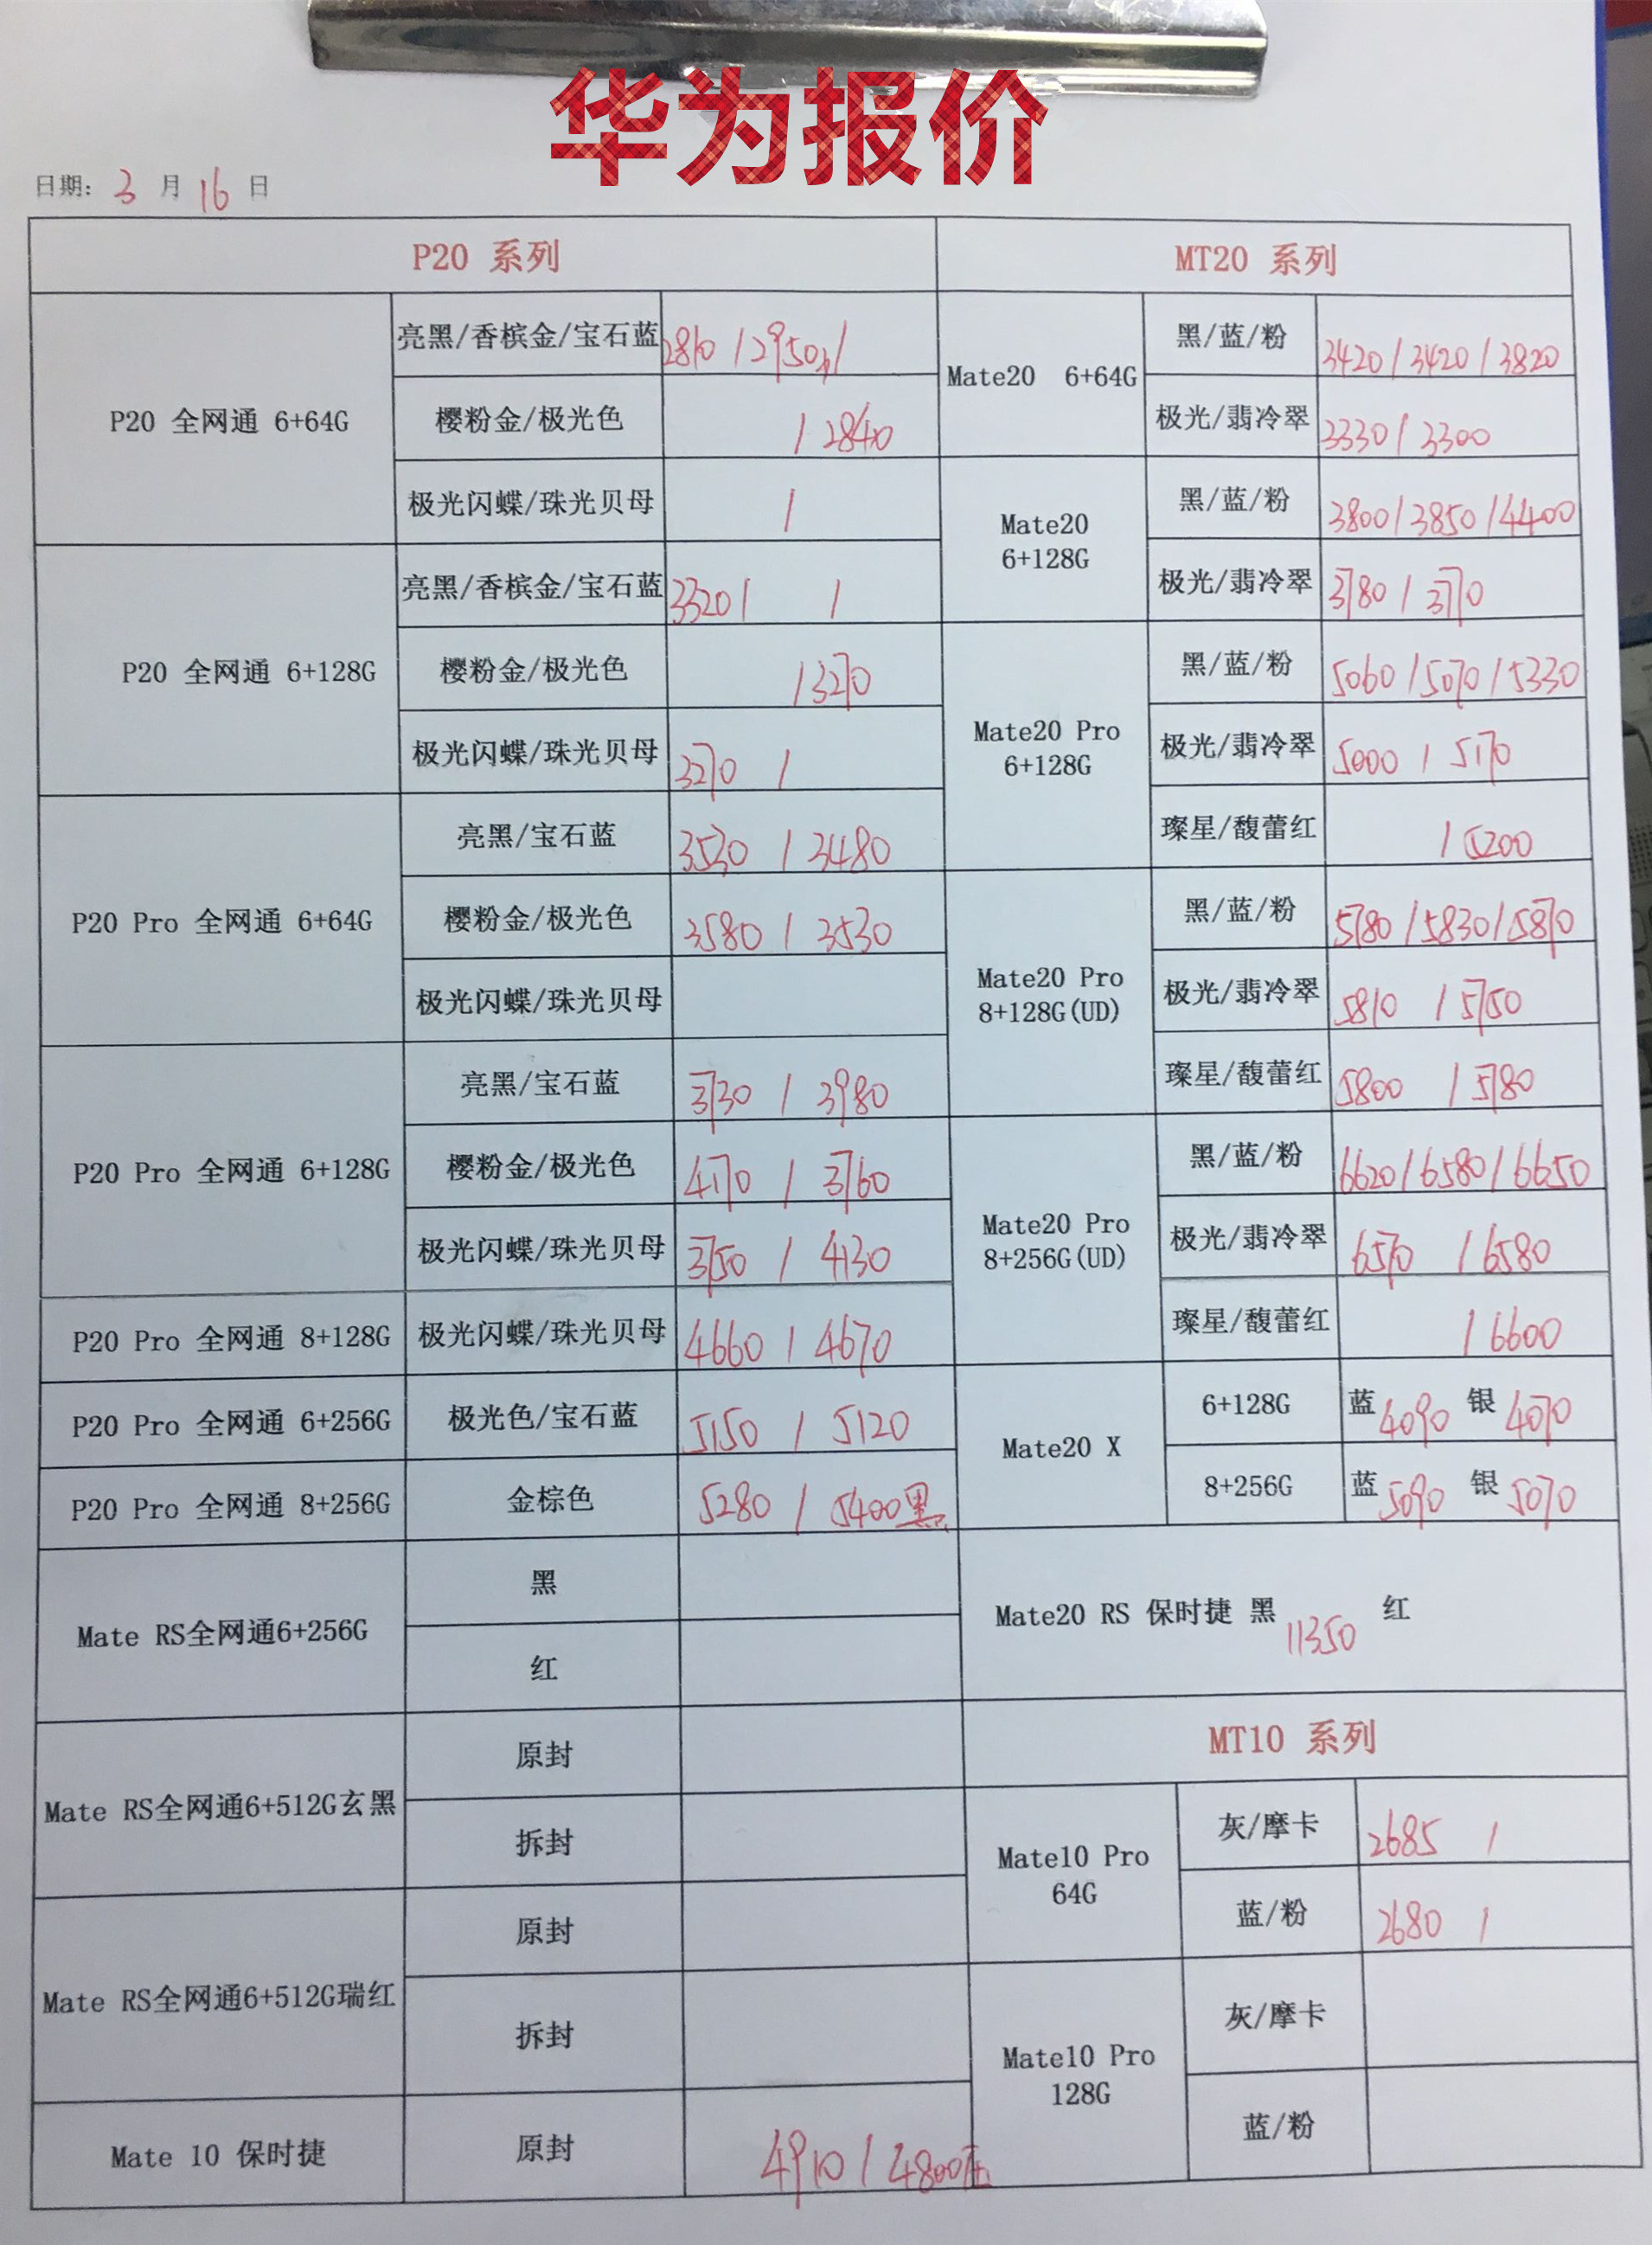 华为报价
日期: 3 月 16 日
P20 系列
P20 全网通 6+64G
亮黑/香槟金/宝石蓝 2810 / 2950 /
樱粉金/极光色 / 2840
极光闪蝶/珠光贝母 /
P20 全网通 6+128G
亮黑/香槟金/宝石蓝 3320 / /
樱粉金/极光色 / 3270
极光闪蝶/珠光贝母 3270 /
P20 Pro 全网通 6+64G
亮黑/宝石蓝 3530 / 3480
樱粉金/极光色 3580 / 3530
极光闪蝶/珠光贝母
P20 Pro 全网通 6+128G
亮黑/宝石蓝 3730 / 3980
樱粉金/极光色 4170 / 3760
极光闪蝶/珠光贝母 3750 / 4130
P20 Pro 全网通 8+128G 极光闪蝶/珠光贝母 4660 / 4670
P20 Pro 全网通 6+256G 极光色/宝石蓝 5150 / 5120
P20 Pro 全网通 8+256G 金棕色 5280 / 5400黑
Mate RS全网通6+256G
黑
红
Mate RS全网通6+512G玄黑
原封
拆封
Mate RS全网通6+512G瑞红
原封
拆封
Mate 10 保时捷 原封 4910 / 4800
MT20 系列
Mate20 6+64G
黑/蓝/粉 3420 / 3420 / 3820
极光/翡冷翠 3330 / 3300
Mate20
6+128G
黑/蓝/粉 3800 / 3850 / 4400
极光/翡冷翠 3780 / 3770
Mate20 Pro
6+128G
黑/蓝/粉 5060 / 5070 / 5330
极光/翡冷翠 5000 / 5170
璨星/馥蕾红 / 5200
Mate20 Pro
8+128G(UD)
黑/蓝/粉 5780 / 5830 / 5870
极光/翡冷翠 5810 / 5750
璨星/馥蕾红 5800 / 5780
Mate20 Pro
8+256G(UD)
黑/蓝/粉 6620 / 6580 / 6650
极光/翡冷翠 6570 / 6580
璨星/馥蕾红 / 6600
Mate20 X
6+128G 蓝 4090 银 4070
8+256G 蓝 5090 银 5070
Mate20 RS 保时捷 黑 11350 红
MT10 系列
Mate10 Pro
64G
灰/摩卡 2685 /
蓝/粉 2680 /
Mate10 Pro
128G
灰/摩卡
蓝/粉